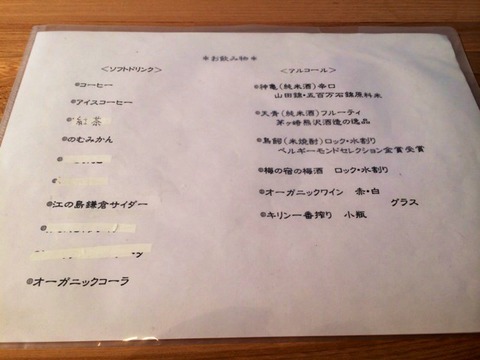 ＊お飲み物＊
＜ソフトドリンク＞
◎コーヒー
◎アイスコーヒー
◎紅茶
◎のむみかん
◎江の島鎌倉サイダー
◎オーガニックコーラ
＜アルコール＞
◎神亀（純米酒）辛口
山田錦・五百万石錦原料米
◎天青（純米酒）フルーティ
茅ヶ崎熊沢酒造の逸品
（米焼酎）ロック・水割り
ベルギーモンドセレクション金賞受賞
◎梅の宿の梅酒 ロック・水割り
◎オーガニックワイン 赤・白
グラス
◎キリン一番搾り 小瓶